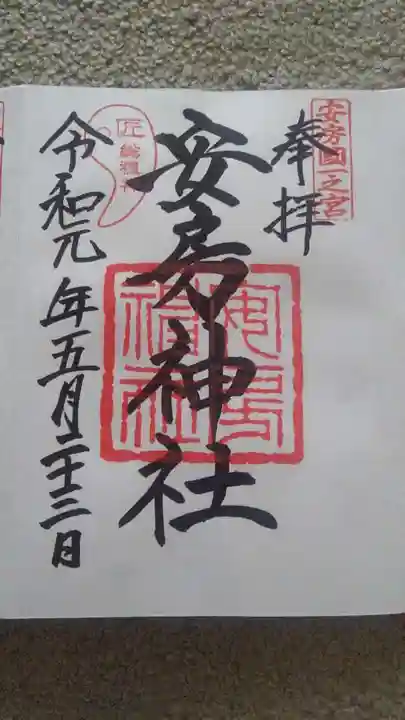 安房國一之宮
奉拝
安房神社
安房神社
匠 総祖神
令和元年五月二十三日